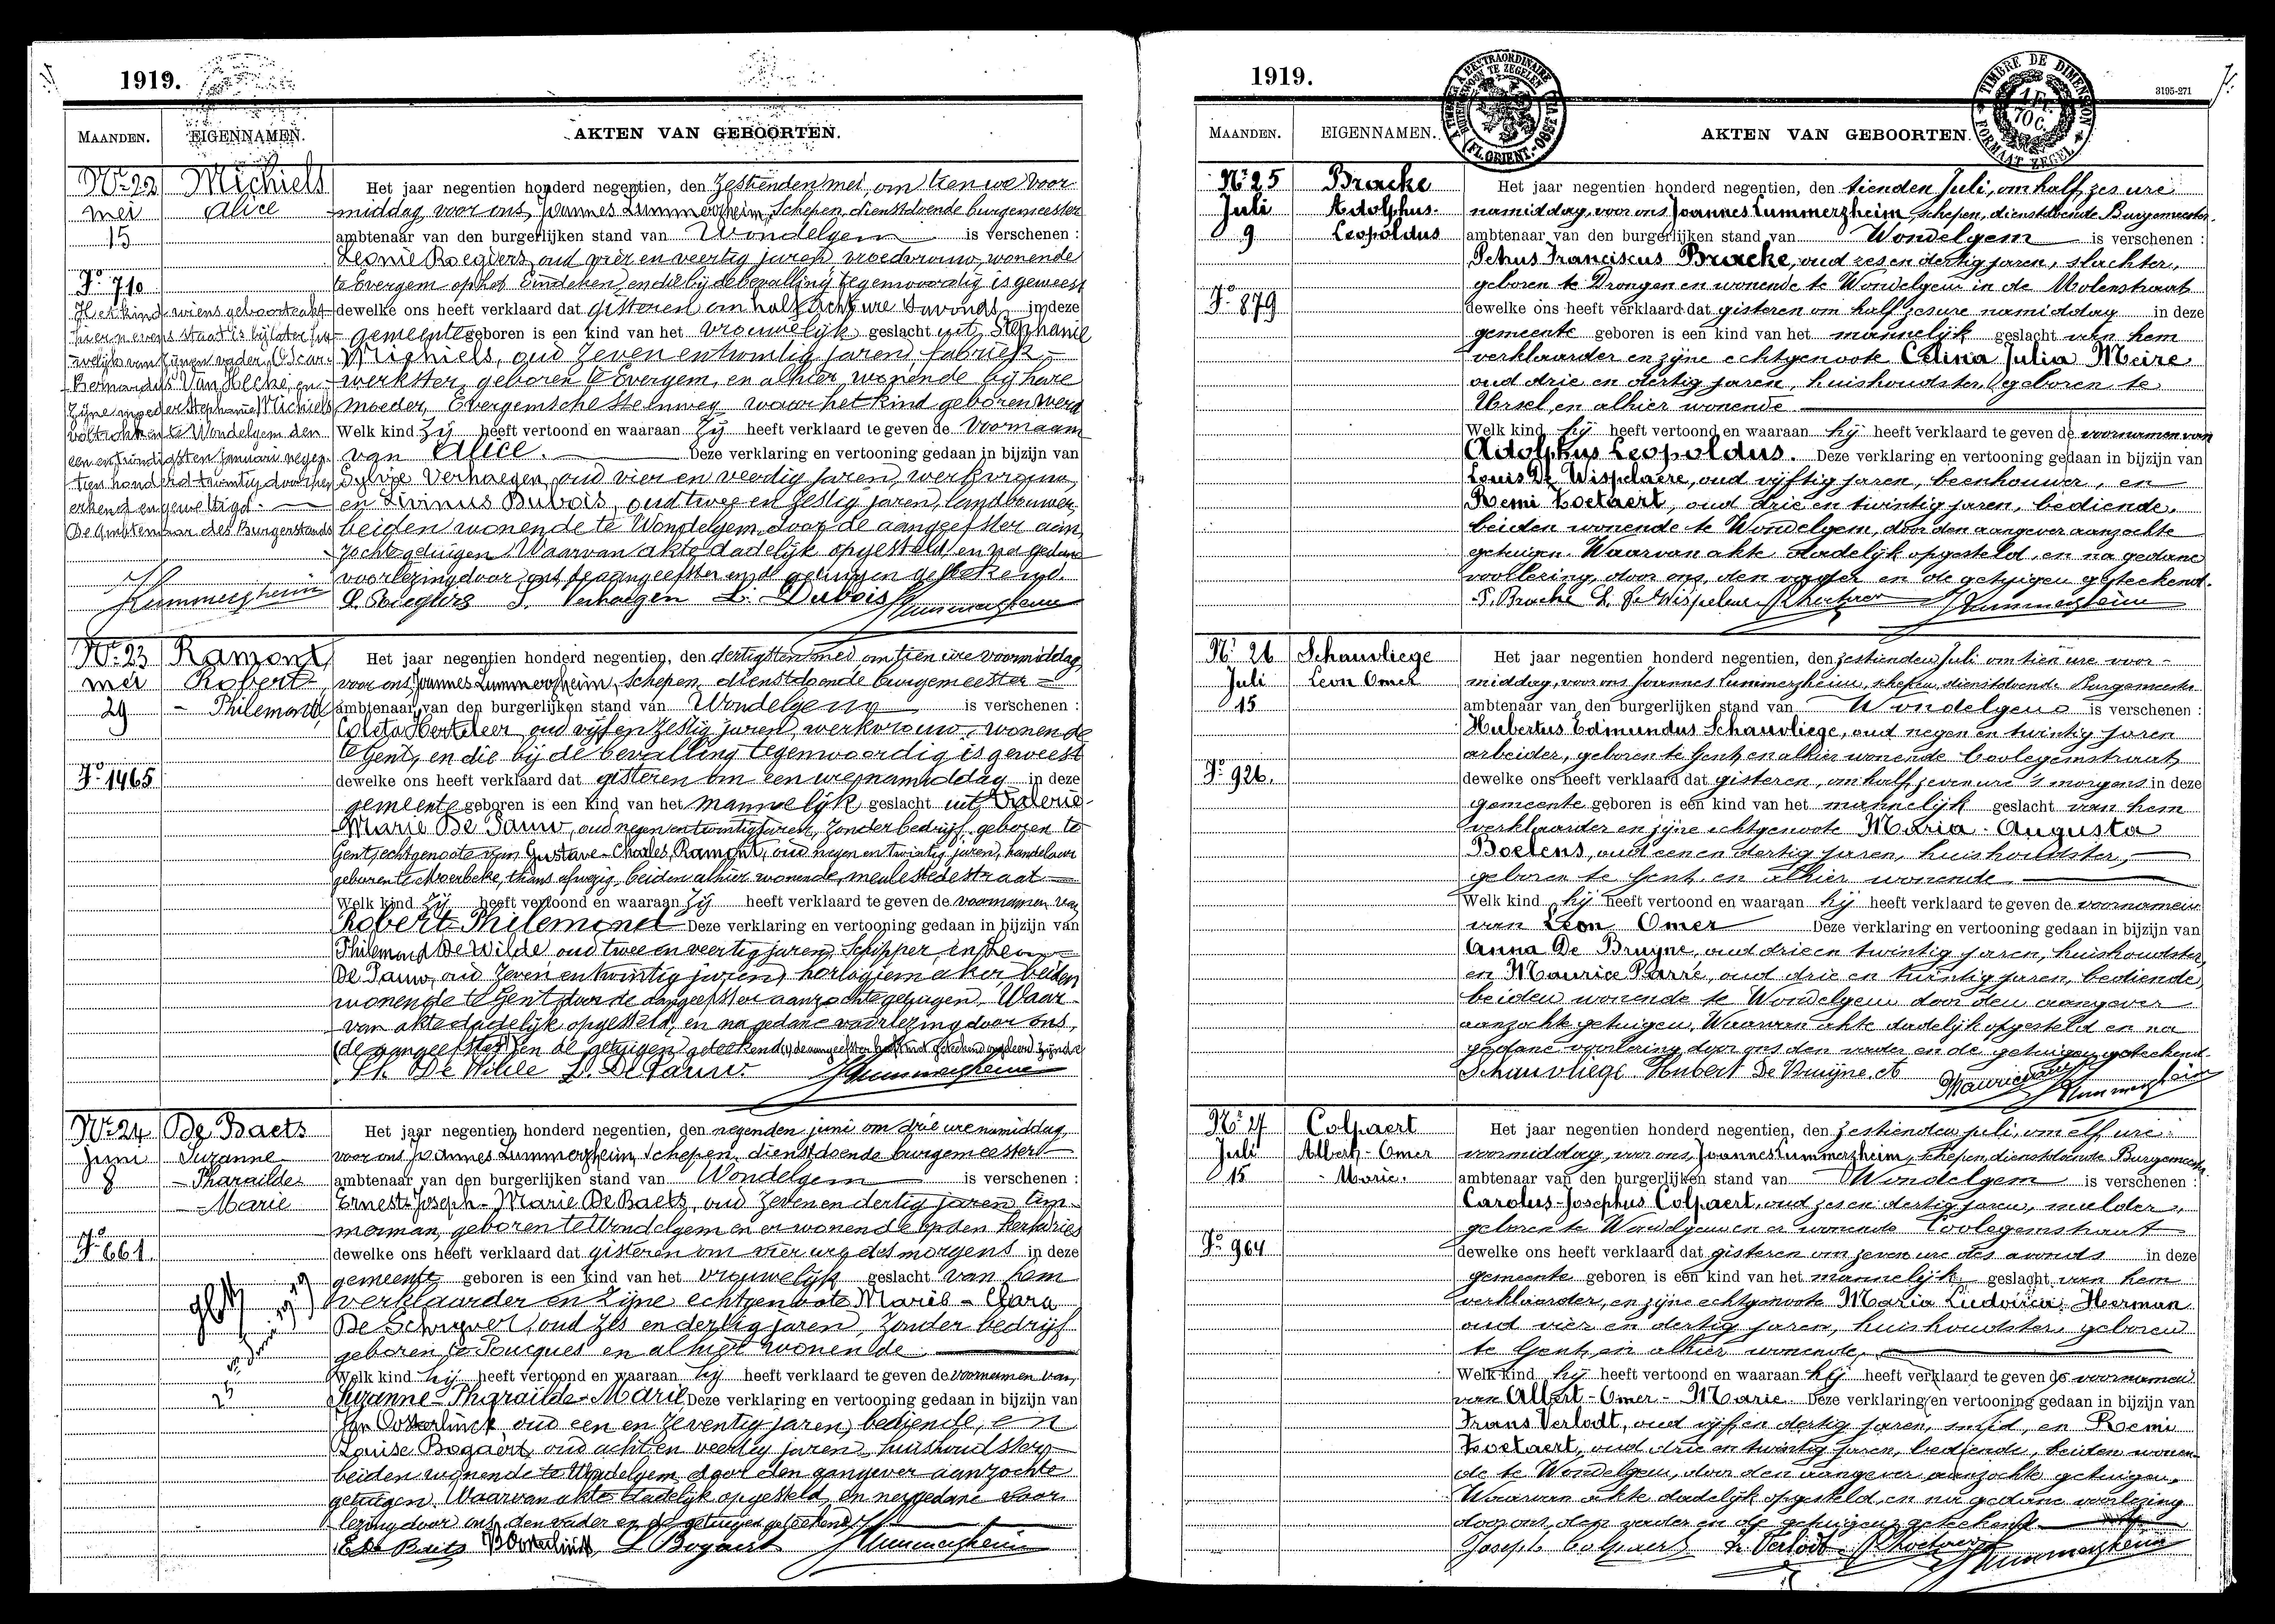 1919.
MAANDEN. EIGENNAMEN. AKTEN VAN GEBOORTEN.
No 22 Michiels
mei Alice
15
Fo 710
Het kind wiens geboorteakt
hiernevens staat is bij later hu-
welijk van zijnen vader, Oscar-
Bernardus Van Hecke, en
zijne moeder Stephanie Michiels
voltrokken te Wondelgem den
een en twintigsten januari negen-
tien honderd twintig door hen
erkend en gewettigd.
De Ambtenaar des Burgerstands
JLummerzheim
Het jaar negentien honderd negentien, den zestienden mei, om tien ure voor
middag, voor ons, Joannes Lummerzheim, Schepen, dienstdoende burgemeester
ambtenaar van den burgerlijken stand van Wondelgem is verschenen :
Leonie Roegiers, oud vier en veertig jaren, vroedvrouw, wonende
te Evergem op het Eindeken, en die bij de bevalling tegenwoordig is geweest
dewelke ons heeft verklaard dat gisteren om half acht ure 's avonds in deze
gemeente geboren is een kind van het vrouwelijk geslacht uit Stephanie
Michiels, oud zeven en twintig jaren, fabriek-
werkster, geboren te Evergem, en alhier wonende bij hare
moeder, Evergemsche steenweg waar het kind geboren werd
Welk kind zij heeft vertoond en waaraan zij heeft verklaard te geven de voornaam
van Alice. Deze verklaring en vertooning gedaan in bijzijn van
Sylvie Verhaegen, oud vier en veertig jaren, werkvrouw,
en Livinus Dubois, oud twee en zestig jaren, landbouwer,
beiden wonende te Wondelgem, door de aangeefster aan
zochte getuigen. Waarvan akte dadelijk opgesteld, en na gedane
voorlezing door ons de aangeefster en de getuigen geteekend.
L. Roegiers S. Verhaegen L. Dubois JLummerzheim
No 23 Ramont
mei Robert
29 - Philemond
Fo 1465
Het jaar negentien honderd negentien, den dertigsten mei, om tien ure voormiddag
voor ons, Joannes Lummerzheim, Schepen, dienstdoende burgemeester
ambtenaar van den burgerlijken stand van Wondelgem is verschenen :
Coleta Herteleer, oud vijf en zestig jaren, werkvrouw, wonende
te Gent, en die bij de bevalling tegenwoordig is geweest
dewelke ons heeft verklaard dat gisteren om een ure namiddag in deze
gemeente geboren is een kind van het mannelijk geslacht uit Valerie-
Marie De Pauw, oud negen en twintig jaren, zonder bedrijf, geboren te
Gent, echtgenoote van Gustave-Charles Ramont, oud negen en twintig jaren, handelaar
geboren te Moerbeke, thans afwezig, beiden alhier wonende, meulestedestraat
Welk kind zij heeft vertoond en waaraan zij heeft verklaard te geven de voornamen van
Robert-Philemond Deze verklaring en vertooning gedaan in bijzijn van
Philemond De Wilde, oud twee en veertig jaren, Schipper, en
De Pauw, oud zeven en twintig jaren, horlogiemaker, beiden
wonende te Gent door de aangeefster aanzochte getuigen. Waar-
van akte dadelijk opgesteld, en na gedane voorlezing door ons,
(de aangeefster) en de getuigen geteekend
Ph. De Wilde L. De Pauw. JLummerzheim
No 24 De Baets
juni Suzanne
8 - Pharailde
- Marie
Fo 661
Het jaar negentien honderd negentien, den negenden juni om drie ure namiddag,
voor ons, Joannes Lummerzheim, Schepen, dienstdoende burgemeester
ambtenaar van den burgerlijken stand van Wondelgem is verschenen :
Ernest-Joseph-Marie De Baets, oud zeven en dertig jaren, tim-
merman, geboren te Wondelgem en er wonende op den
dewelke ons heeft verklaard dat gisteren om vier ure des morgens in deze
gemeente geboren is een kind van het vrouwelijk geslacht van hem
verklaarder en zijne echtgenoote Marie-Clara
De Schryver, oud zes en dertig jaren, zonder bedrijf
geboren te Poucques en alhier wonende
Welk kind hij heeft vertoond en waaraan hij heeft verklaard te geven de voornamen van
Suzanne-Pharailde-Marie Deze verklaring en vertooning gedaan in bijzijn van
Oosterlinck oud een en zeventig jaren, bediende, en
Louise Bogaert, oud acht en veertig jaren, huishoudster,
beiden wonende te Wondelgem, door den aangever aanzochte
getuigen. Waarvan akte dadelijk opgesteld, en na gedane voor-
lezing door ons, den vader en de getuigen geteekend
E De Baets Oosterlinck L Bogaert JLummerzheim
1919.
3195-271
TIMBRE DE DIMENSION
1 Fr. 70 C.
FORMAAT ZEGEL
MAANDEN. EIGENNAMEN. AKTEN VAN GEBOORTEN.
No 25 Bracke
Juli Adolphus-
9 Leopoldus
Fo 879
Het jaar negentien honderd negentien, den tienden Juli, om half zes ure
namiddag, voor ons, Joannes Lummerzheim, schepen, dienstdoende Burgemeester,
ambtenaar van den burgerlijken stand van Wondelgem is verschenen :
Petrus Franciscus Bracke, oud zes en dertig jaren, slachter,
geboren te Drongen en wonende te Wondelgem in de Molenstraat
dewelke ons heeft verklaard dat gisteren om half zes ure namiddag in deze
gemeente geboren is een kind van het mannelijk geslacht van hem
verklaarder en zijne echtgenoote Celina Julia Meire
oud drie en dertig jaren, huishoudster, geboren te
Ursel, en alhier wonende
Welk kind hij heeft vertoond en waaraan hij heeft verklaard te geven de voornamen van
Adolphus Leopoldus. Deze verklaring en vertooning gedaan in bijzijn van
Louis De Wispelaere, oud vijftig jaren, beenhouwer, en
Remi Zoetaert, oud drie en twintig jaren, bediende,
beiden wonende te Wondelgem, door den aangever aanzochte
getuigen. Waarvan akte dadelijk opgesteld, en na gedane
voorlezing, door ons, den vader en de getuigen geteekend.
P. Bracke L. De Wispelaere R. Zoetaert JLummerzheim
No 26 Schauvliege
Juli Leon Omer
15
Fo 926.
Het jaar negentien honderd negentien, den zestienden Juli om tien ure voor-
middag, voor ons Joannes Lummerzheim, schepen, dienstdoende Burgemeester
ambtenaar van den burgerlijken stand van Wondelgem is verschenen :
Hubertus Edmundus Schauvliege, oud negen en twintig jaren
arbeider, geboren te Gent, en alhier wonende Coolegemstraat
dewelke ons heeft verklaard dat gisteren, om half zeven ure 's morgens in deze
gemeente geboren is een kind van het mannelijk geslacht van hem
verklaarder en zijne echtgenoote Maria-Augusta
Boelens, oud een en dertig jaren, huishoudster,
geboren te Gent en alhier wonende
Welk kind hij heeft vertoond en waaraan hij heeft verklaard te geven de voornamen
van Leon Omer Deze verklaring en vertooning gedaan in bijzijn van
Anna De Bruyne, oud drie en twintig jaren, huishoudster,
en Maurice Parre, oud drie en twintig jaren, bediende,
beiden wonende te Wondelgem door den aangever
aanzochte getuigen. Waarvan akte dadelijk opgesteld en na
gedane voorlezing door ons den vader en de getuigen geteekend.
Schauvliege Hubert De Bruyne A Maurice Parre JLummerzheim
No 27 Colpaert
Juli Albert-Omer
15 - Marie.
Fo 964
Het jaar negentien honderd negentien, den zestienden juli, om elf ure
voormiddag, voor ons, Joannes Lummerzheim, schepen, dienstdoende Burgemeester
ambtenaar van den burgerlijken stand van Wondelgem is verschenen :
Carolus-Josephus Colpaert, oud zes en dertig jaren, mulder,
geboren te Wondelgem en er wonende Coolegemstraat
dewelke ons heeft verklaard dat gisteren om zeven ure des avonds in deze
gemeente geboren is een kind van het mannelijk geslacht van hem
verklaarder, en zijne echtgenoote Maria Ludovica Herman
oud vier en dertig jaren, huishoudster, geboren
te Gent, en alhier wonende,
Welk kind hij heeft vertoond en waaraan hij heeft verklaard te geven de voornamen
van Albert-Omer-Marie. Deze verklaring en vertooning gedaan in bijzijn van
Frans Verlodt, oud vijf en dertig jaren, smid, en Remi
Zoetaert, oud drie en twintig jaren, bediende, beiden wonen-
de te Wondelgem, door den aangever aanzochte getuigen.
Waarvan akte dadelijk opgesteld, en na gedane voorlezing
door ons, den vader en de getuigen geteekend
Joseph Colpaert F. Verlodt R. Zoetaert JLummerzheim